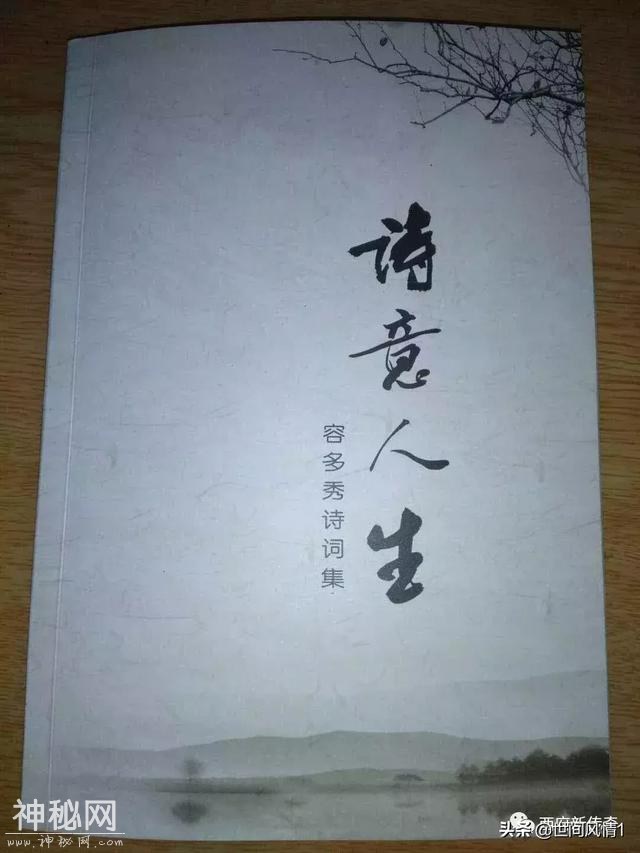 诗意人生
容多秀诗词集
神秘网
www.神秘网.COM
头条@世间风情1